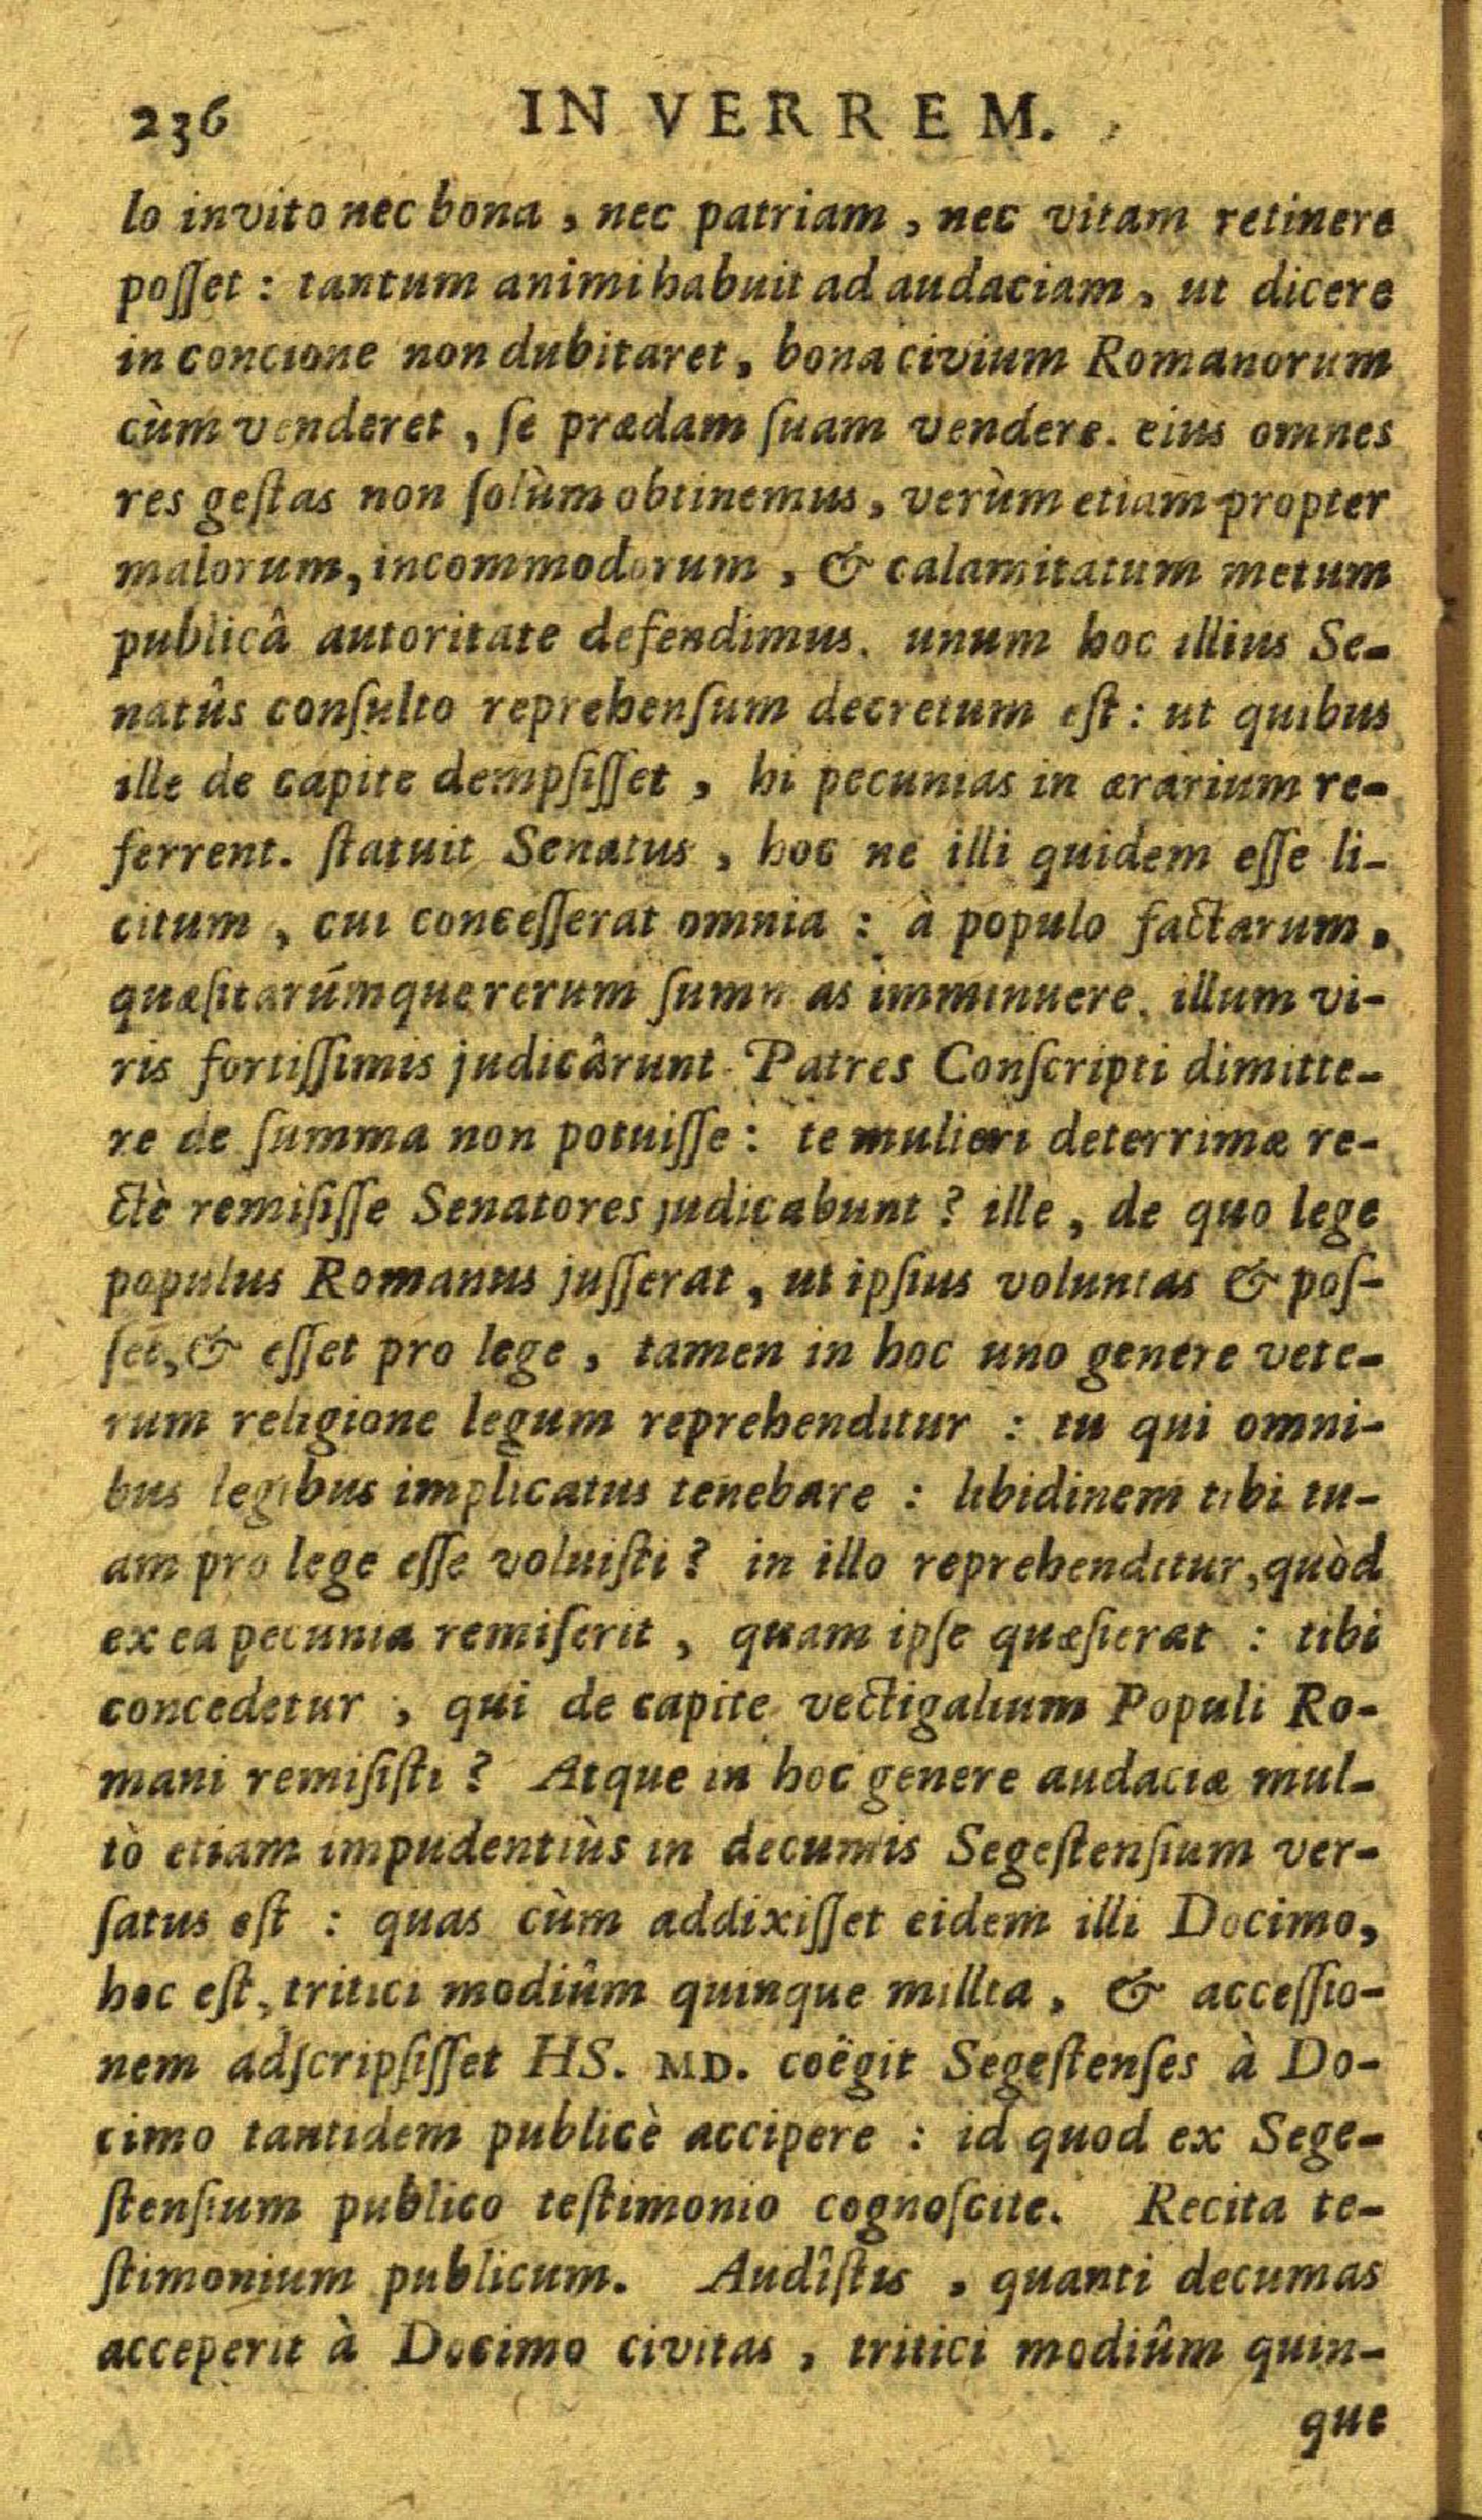 236 IN VERREM.
lo invito nec bona, nec patriam, nec vitam retinere
poſſet: tantum animi habuit ad audaciam, ut dicere
in concione non dubitaret, bona civium Romanorum
cùm venderet, ſe prædam ſuam vendere. eius omnes
res geſtas non ſolùm obtinemus, verùm etiam propter
malorum, incommodorum, & calamitatum metum
publicâ autoritate defendimus. unum hoc illius Se-
natûs conſulto reprehenſum decretum eſt: ut quibus
ille de capite dempſiſſet, hi pecunias in ærarium re-
ferrent. ſtatuit Senatus, hoc ne illi quidem eſſe li-
citum, cui conceſſerat omnia: à populo factarum,
quæſitarúmque rerum ſummas imminuere. illum vi-
ris fortiſſimis judicârunt Patres Conſcripti dimitte-
re de ſumma non potuiſſe: te mulieri deterrimæ re-
ctè remiſiſſe Senatores judicabunt? ille, de quo lege
populus Romanus juſſerat, ut ipſius voluntas & poſ-
ſet, & eſſet pro lege, tamen in hoc uno genere vete-
rum religione legum reprehenditur: tu qui omni-
bus legibus implicatus tenebare: libidinem tibi tu-
am pro lege eſſe voluiſti? in illo reprehenditur, quòd
ex ea pecunia remiſerit, quam ipſe quæſierat: tibi
concedetur, qui de capite vectigalium Populi Ro-
mani remiſiſti? Atque in hoc genere audaciæ mul-
tò etiam impudentiùs in decumis Segeſtenſium ver-
ſatus eſt: quas cùm addixiſſet eidem illi Docimo,
hoc eſt, tritici modiûm quinque millia, & acceſſio-
nem adſcripſiſſet HS. MD. coëgit Segeſtenſes à Do-
cimo tantidem publicè accipere: id quod ex Sege-
ſtenſium publico teſtimonio cognoſcite. Recita te-
ſtimonium publicum. Audîſtis, quanti decumas
acceperit à Docimo civitas, tritici modiûm quin-
que